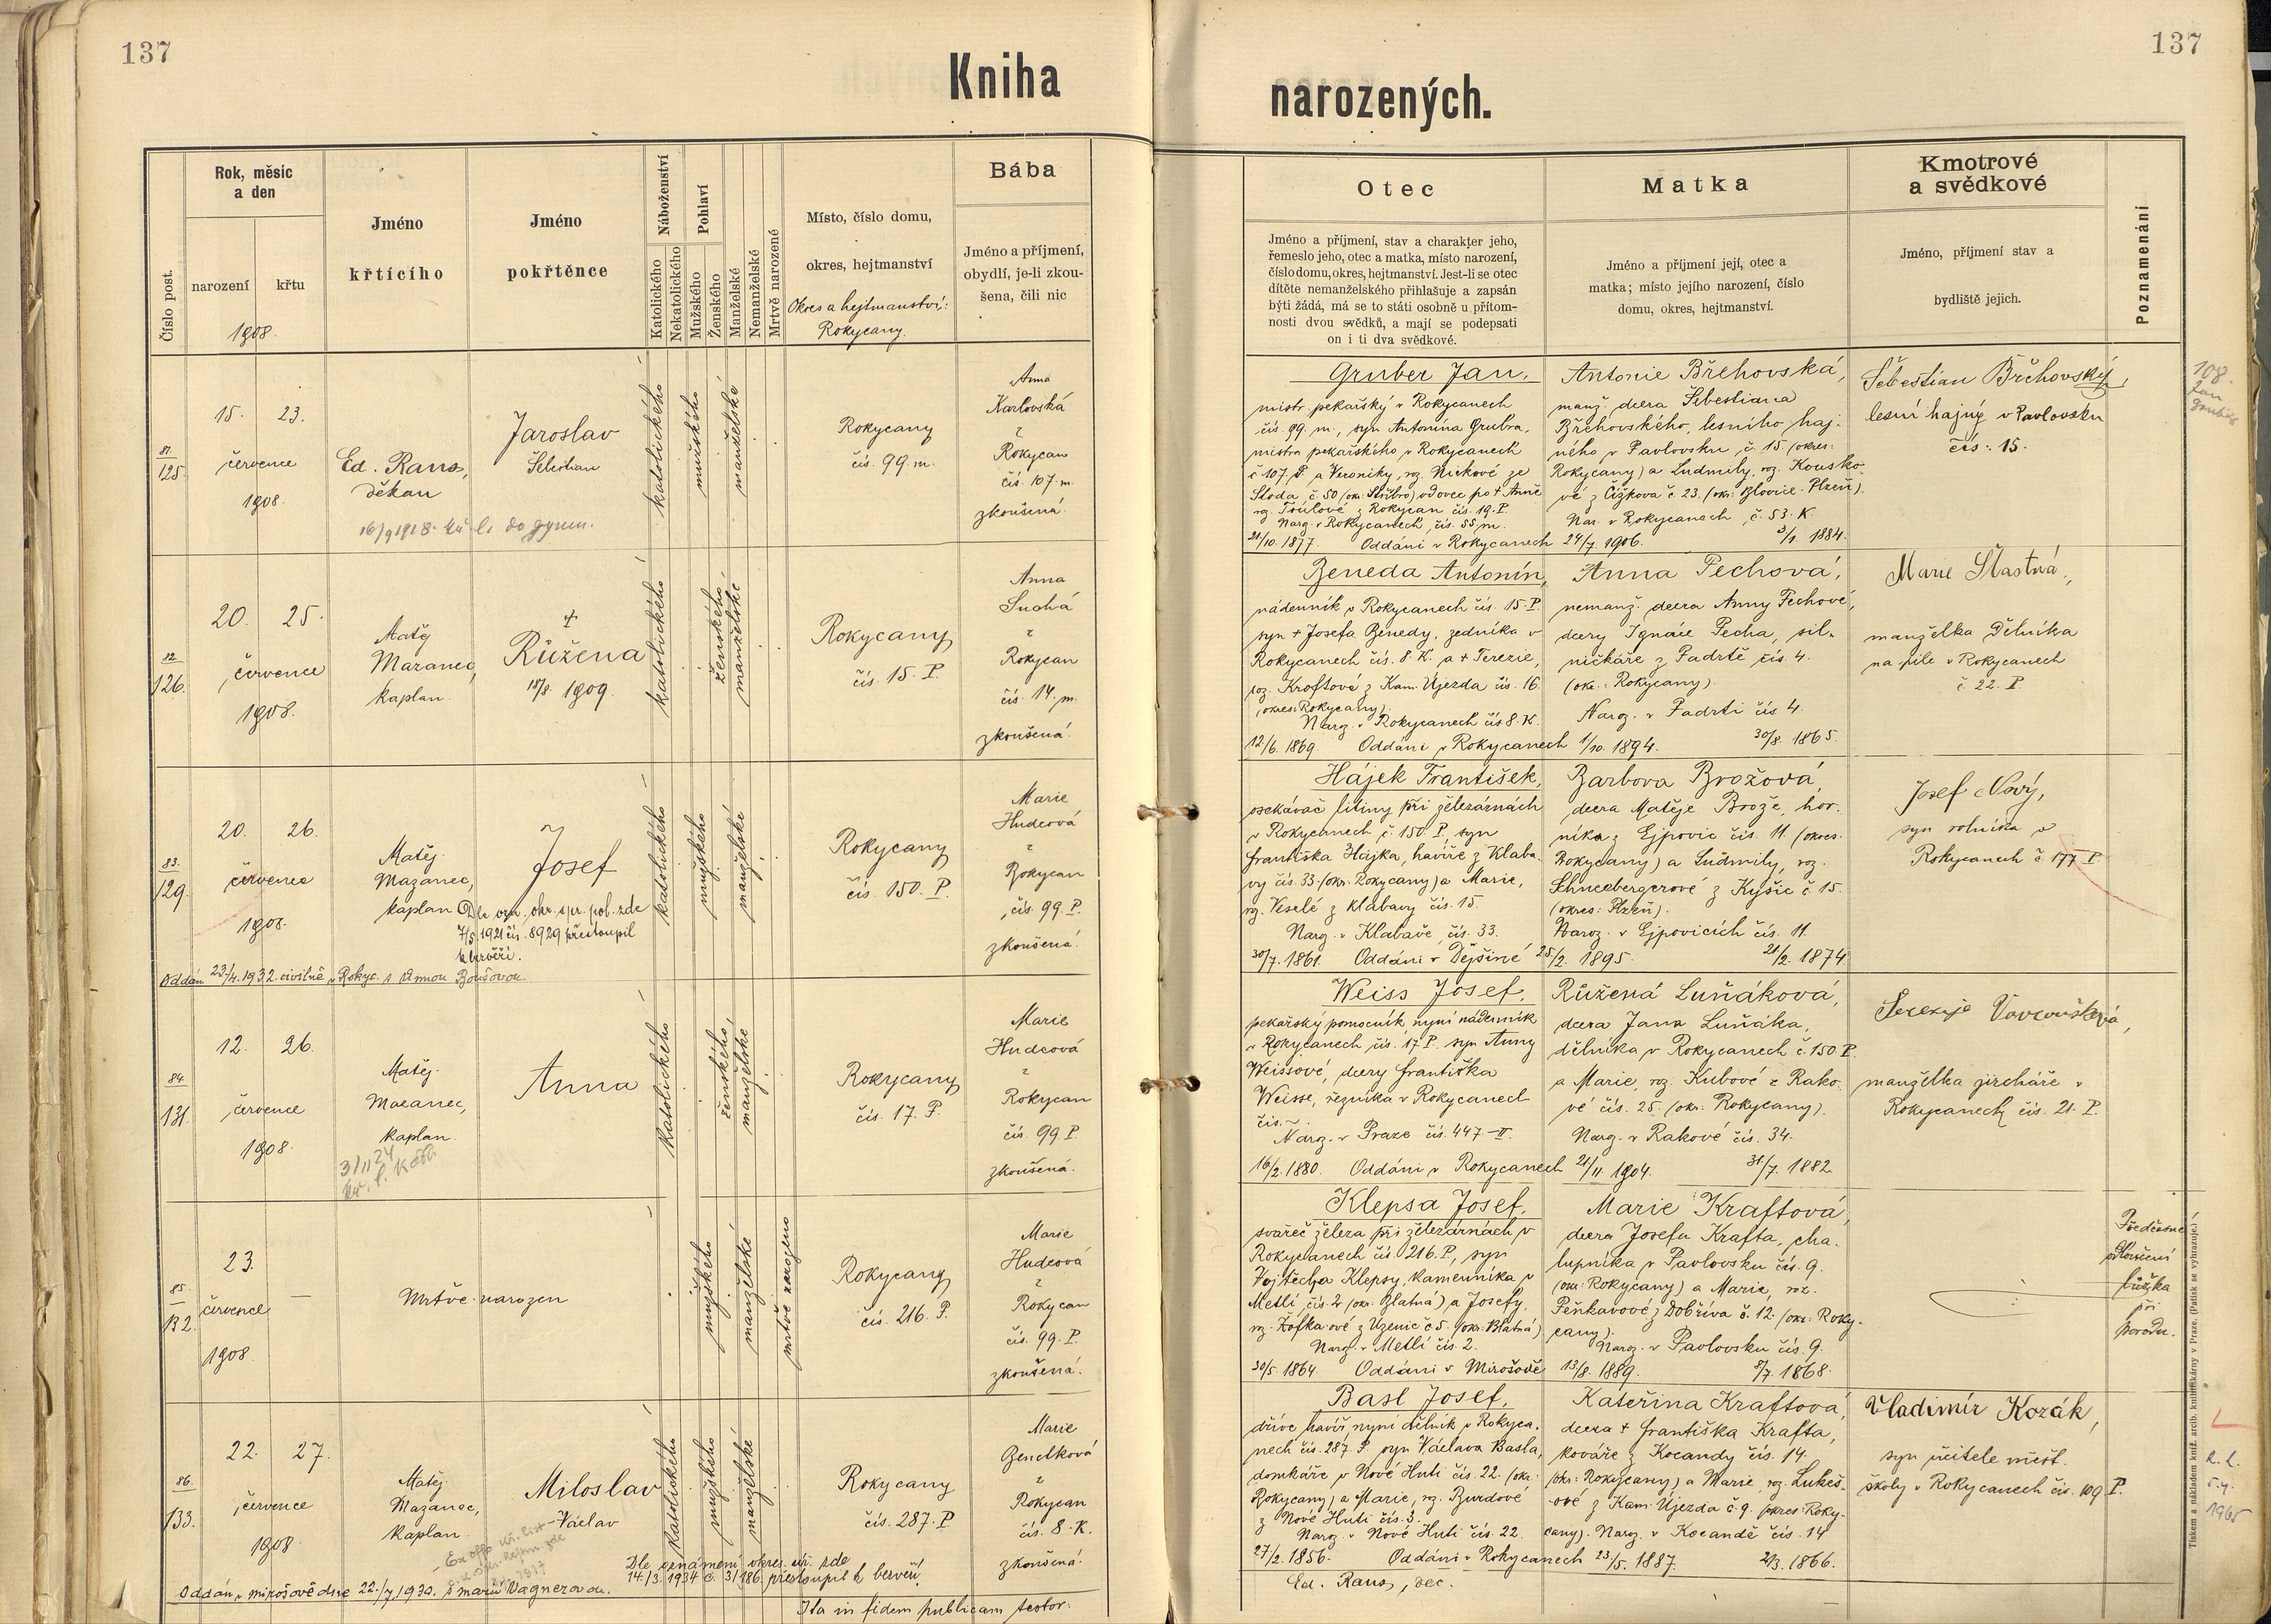 137
137
Kniha
narozených.
Číslo post.
Rok, měsíc
a den
narození
křtu
1908.
Jméno
křtícího
Jméno
pokřtěnce
Náboženství
Katolického
Nekatolického
Pohlaví
Mužského
Ženského
Manželské
Nemanželské
Mrtvě narozené
Místo, číslo domu,
okres, hejtmanství
Okres a hejtmanství:
Rokycany.
Bába
Jméno a příjmení,
obydlí, je-li zkou-
šena, čili nic
Otec
Jméno a příjmení, stav a charakter jeho,
řemeslo jeho, otec a matka, místo narození,
číslo domu, okres, hejtmanství. Jest-li se otec
dítěte nemanželského přihlašuje a zapsán
býti žádá, má se to státi osobně u přítom-
nosti dvou svědků, a mají se podepsati
on i ti dva svědkové.
Matka
Jméno a příjmení její, otec a
matka; místo jejího narození, číslo
domu, okres, hejtmanství.
Kmotrové
a svědkové
Jméno, příjmení stav a
bydliště jejich.
Poznamenání
125.
15. 23.
července
1908.
Ed. Rans,
děkan
Jaroslav
Šebestian
katolického
mužského
manželské
Rokycany
čís. 99. m.
Anna
Karlovská
z
Rokycan
čís. 107. m.
zkoušená.
Gruber Jan,
mistr pekařský v Rokycanech
čís. 99. m., syn Antonína Grubra,
mistra pekařského v Rokycanech
č. 107. P. a Veroniky, roz. Nickové ze
Stoda, č. 50 (okr: Stříbro) vdovec po + Anně
Naroz. v Rokycanech, čís. 55. m.
21/10. 1877. Oddáni v Rokycanech 24/7. 1906.
Antonie Břehovská,
manž. dcera Šebestiana
Břehovského, lesního haj-
ného v Pavlovsku, č. 15 (okres:
Rokycany) a Ludmily, roz. Kousko-
vé z Čížkova č. 23. (okr: Blovice - Plzeň).
Nar. v Rokycanech, č. 53. K.
3/1 1884.
Šebestian Břehovský,
lesní hajný v Pavlovsku
čís. 15.
108.
Jan
Gruber
126.
20. 25.
července
1908.
Matěj
Mazanec,
kaplan.
+
Růžena
18/8 1909.
katolického
ženského
manželské
Rokycany
čís. 15. P.
Anna
Suchá
z
Rokycan
čís. 14. m.
zkoušená.
Beneda Antonín,
nádenník v Rokycanech čís. 15. P.
syn + Josefa Benedy, zedníka v
Rokycanech čís. 8. K. a + Terezie,
roz. Kroftové z Kam. Újezda čís. 16.
(okres: Rokycany).
Naroz. v Rokycanech čís 8. K.
12/6. 1869. Oddáni v Rokycanech 1/10. 1894.
Anna Pechová,
nemanž. dcera Anny Pechové,
dcery Ignáce Pecha, sil-
ničkáře z Padrtě čís. 4.
(okr.: Rokycany).
Naroz. v Padrti čís 4.
30/8. 1865.
Marie Šťastná,
manželka dělníka
na pile v Rokycanech
č. 22. P.
83.
129.
20. 26.
července
1908.
Matěj
Mazanec,
kaplan
Josef
Dle ozn. okr. spr. pol. zde
7/5. 1921 čís. 8929 přestoupil
k bezvěří.
Oddán 23/4. 1932. civilně v Rokyc. s
katolického
mužského
manželské
Rokycany
čís. 150. P.
Marie
Hudcová
z
Rokycan
čís. 99. P.
zkoušená.
Hájek František,
osekávač litiny při železárnách
v Rokycanech č. 150. P., syn
Františka Hájka, havíře z Klaba-
vy čís. 33. (okr. Rokycany) a Marie,
roz. Veselé z Klabavy čís. 15.
Naroz. v Klabavě, čís. 33.
30/7. 1861. Oddáni v Dýšině 25/2. 1895.
Barbora Brožová,
dcera Matěje Brože, hor-
níka z Ejpovic čís. 11. (okres.
Rokycany) a Ludmily, roz.
Schneebergerové z Kyšic č. 15.
(okres: Plzeň).
Naroz. v Ejpovicích čís. 11.
21/2. 1874.
Josef Nový,
syn rolníka v
Rokycanech č. 177 P.
84.
131.
12. 26.
července
1908.
Matěj
Mazanec,
kaplan.
3/11 24
Anna
katolického
ženského,
manželské
Rokycany
čís. 17. P.
Marie
Hudcová
z
Rokycan
čís. 99. P.
zkoušená.
Weiss Josef,
pekařský pomocník, nyní nádenník
v Rokycanech čís. 17. P. syn Anny
Weissové, dcery Františka
Weisse, řezníka v Rokycanech
čís. –.
Naroz. v Praze čís. 447-II.
16/2. 1880. Oddáni v Rokycanech 21/11. 1904.
Růžena Luňáková,
dcera Jana Luňáka,
dělníka v Rokycanech č. 150. P.
a Marie, roz. Kubové z Rako-
vé čís. 25. (okr: Rokycany).
Naroz. v Rakové čís. 34.
31/7. 1882.
manželka jircháře v
Rokycanech čís. 21. P.
85.
132.
23. –
července
1908.
Mrtvě narozen
mužského
manželské
mrtvě narozeno
Rokycany
čís. 216. P.
Marie
Hudcová
z
Rokycan
čís. 99. P.
zkoušená.
Klepsa Josef,
svářeč železa při železárnách v
Rokycanech čís. 216. P., syn
Vojtěcha Klepsy, kamenníka v
Metli, čís. 2 (okr. Blatná) a Josefy,
roz. Žofkaové z Uzenic č. 5. (okr: Blatná)
Naroz. v Metli čís. 2.
30/5. 1864. Oddáni v Mirošově 13/8. 1889.
Marie Kraftová,
dcera Josefa Krafta, cha-
lupníka v Pavlovsku čís. 9.
(okr: Rokycany) a Marie, roz.
Peňkavové z Dobříva č. 12. (okr: Roky-
cany).
Naroz. v Pavlovsku čís. 9.
8/7. 1868.
Předčasné
odloučení
lůžka
při
porodu.
86.
133.
22. 27.
července
1908
Matěj
Mazanec,
kaplan.
Miloslav
– Václav
katolického
mužského
manželské
Rokycany
čís. 287. P.
Marie
z
Rokycan
čís. 8. K.
zkoušená.
Dle oznámení okres. úř. zde
14./3. 1934 č. 3/186. přestoupil k bezvěří.
Oddán v Mirošově dne 22./7. 1930. s Marií Vagnerovou.
Basl Josef,
dříve havíř, nyní dělník v Rokyca-
nech čís. 287. P. syn Václava Basla,
domkáře v Nové Huti čís. 22. (okr.:
Rokycany) a Marie, roz. Burdové
z Nové Huti čís. 3.
Naroz. v Nové Huti čís. 22.
27/2. 1856. Oddáni v Rokycanech 23/5. 1887.
Kateřina Kraftová,
dcera + Františka Krafta,
kováře z Kocandy čís. 14.
(okr: Rokycany) a Marie, roz. Lukeš-
ové z Kam. Újezda č. 9. (okres: Roky-
cany). Naroz. v Kocandě čís. 14
2/3. 1866.
Vladimír Kozák,
syn učitele měšť.
školy v Rokycanech čís. 109 P.
1965
Ita in fidem publicam testor:
Ed. Rans, dec.
Tiskem a nákladem kníž. arcib. knihtiskárny v Praze. (Patisk se vyhrazuje.)